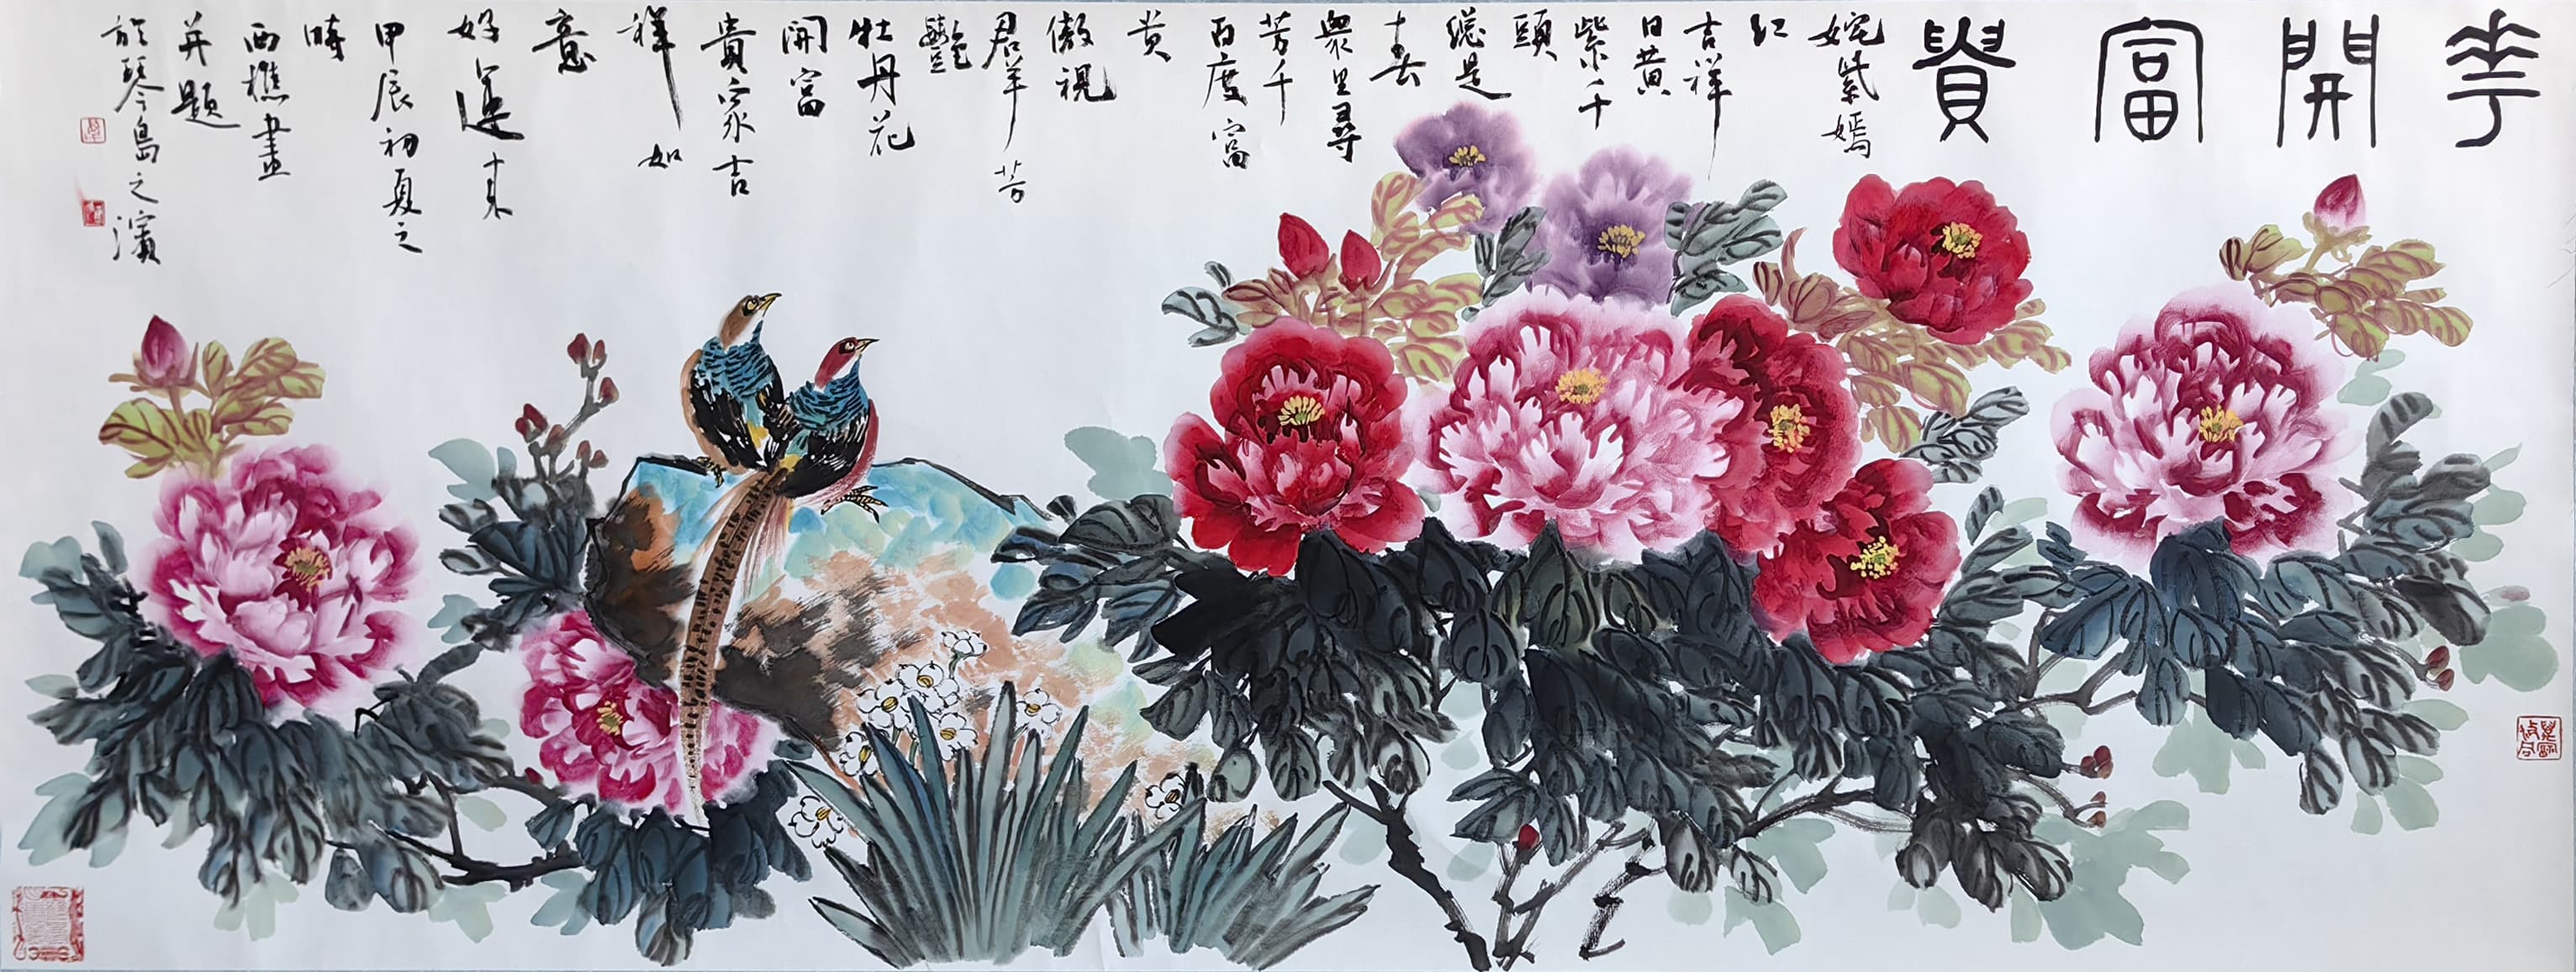 華開富貴
姹紫嫣
红
吉祥
日黄
紫千
頭
總是
春
衆里尋
芳千
百度富
贵
傲視
群芳
艷
牡丹花
開富
貴家吉
祥如
意
好運来
甲辰初夏之
時
西樵畫
并題
於琴島之濱